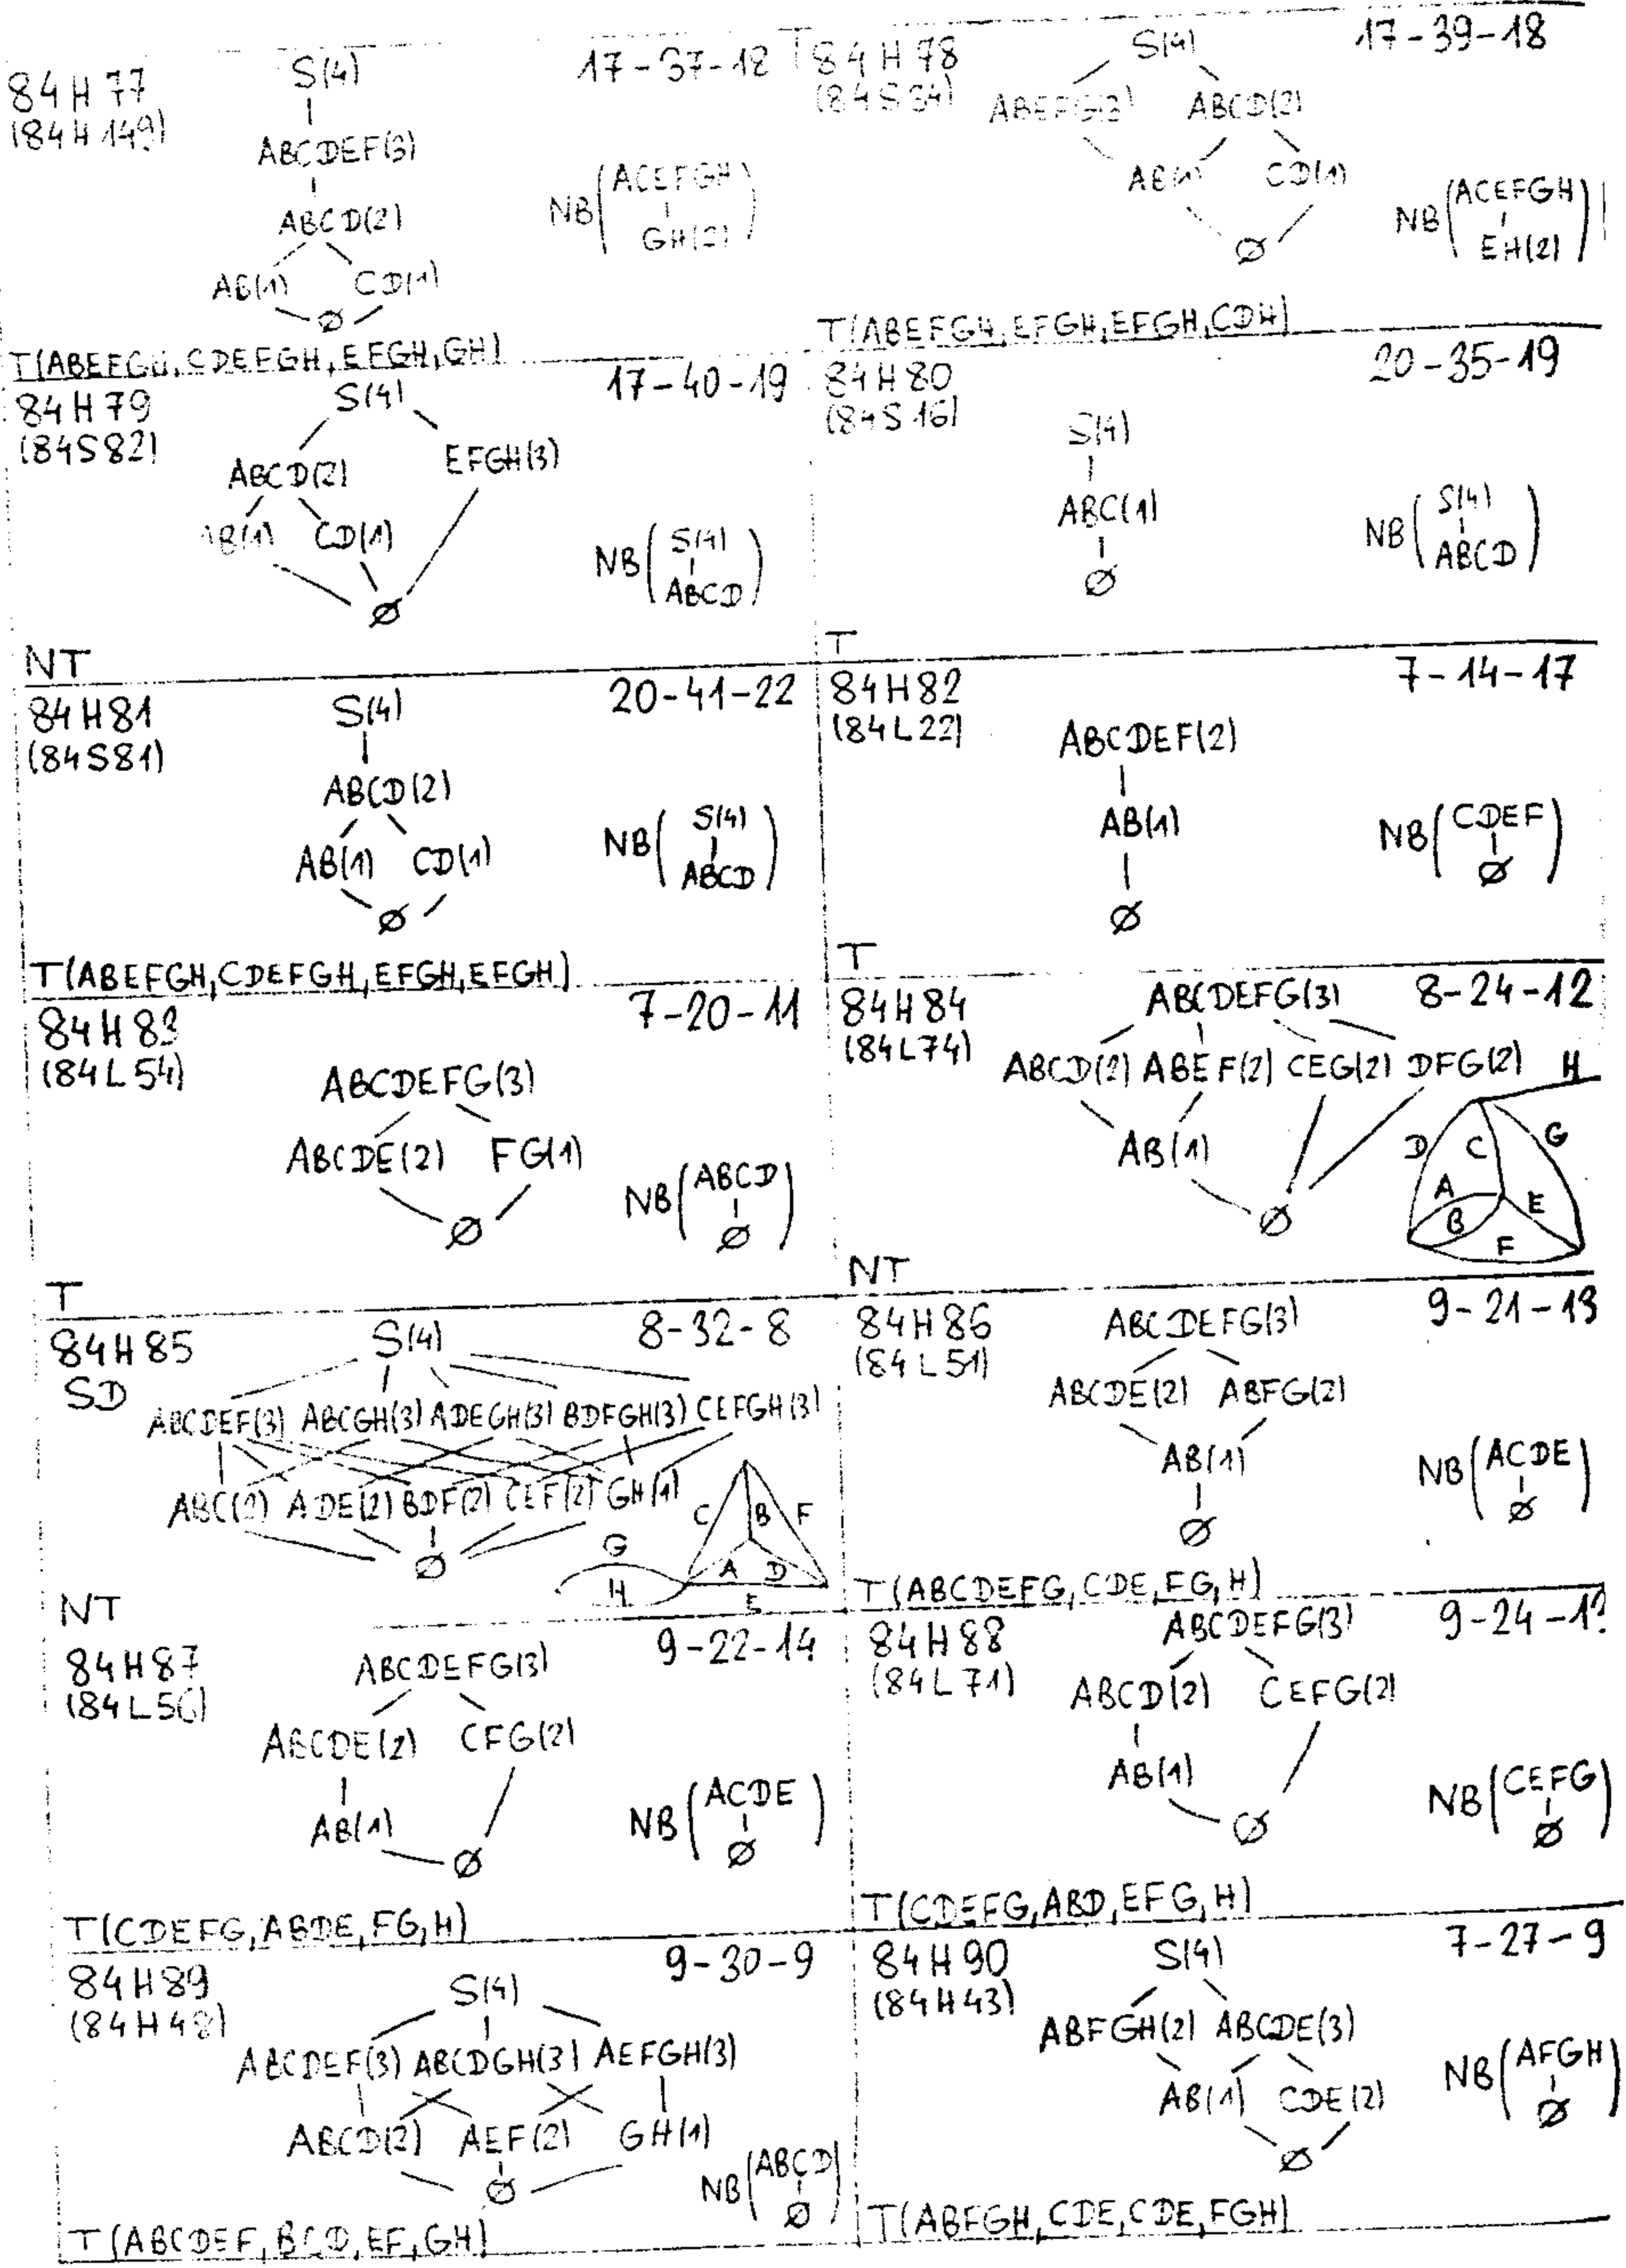 84H77
(84H149)
S(4)
17-37-18
ABCDEF(3)
ABCD(2)
AB(1) CD(1)
Ø
NB(ACEFGH
GH(2))
T(ABEFGH, CDEFGH, EFGH, GH)
84H78
(84S34)
S(4)
17-39-18
ABEFG(3) ABCD(2)
AB(1) CD(1)
Ø
NB(ACEFGH
EH(2))
T(ABEFGH, EFGH, EFGH, CDH)
84H79
(84S82)
S(4)
17-40-19
ABCD(2) EFGH(3)
AB(1) CD(1)
Ø
NB(S(4)
ABCD)
NT
84H80
(84S16)
20-35-19
S(4)
ABC(1)
Ø
NB(S(4)
ABCD)
T
84H81
(84S81)
S(4)
20-41-22
ABCD(2)
AB(1) CD(1)
Ø
NB(S(4)
ABCD)
T(ABEFGH, CDEFGH, EFGH, EFGH)
84H82
(84L22)
7-14-17
ABCDEF(2)
AB(1)
Ø
NB(CDEF
Ø)
T
84H83
(84L54)
7-20-11
ABCDEFG(3)
ABCDE(2) FG(1)
Ø
NB(ABCD
Ø)
T
84H84
(84L74)
ABCDEFG(3)
8-24-12
ABCD(2) ABEF(2) CEG(2) DFG(2)
AB(1)
Ø
H
D C G
A E
B
F
NT
84H85
SD
S(4)
8-32-8
ABCDEF(3) ABCGH(3) ADEGH(3) BDFGH(3) CEFGH(3)
ABC(2) ADE(2) BDF(2) CEF(2) GH(1)
Ø
C B F
G A D
H E
NT
84H86
(84L51)
ABCDEFG(3)
9-21-13
ABCDE(2) ABFG(2)
AB(1)
Ø
NB(ACDE
Ø)
T(ABCDEFG, CDE, FG, H)
84H87
(84L56)
ABCDEFG(3)
9-22-14
ABCDE(2) CFG(2)
AB(1)
Ø
NB(ACDE
Ø)
T(CDEFG, ABDE, FG, H)
84H88
(84L71)
ABCDEFG(3)
ABCD(2) CEFG(2)
AB(1)
Ø
NB(CEFG
Ø)
T(CDEFG, ABD, EFG, H)
84H89
(84H48)
S(4)
9-30-9
ABCDEF(3) ABCDGH(3) AEFGH(3)
ABCD(2) AEF(2) GH(1)
Ø
NB(ABCD
Ø)
T(ABCDEF, BCD, EF, GH)
84H90
(84H43)
S(4)
7-27-9
ABFGH(2) ABCDE(3)
AB(1) CDE(2)
Ø
NB(AFGH
Ø)
T(ABFGH, CDE, CDE, FGH)